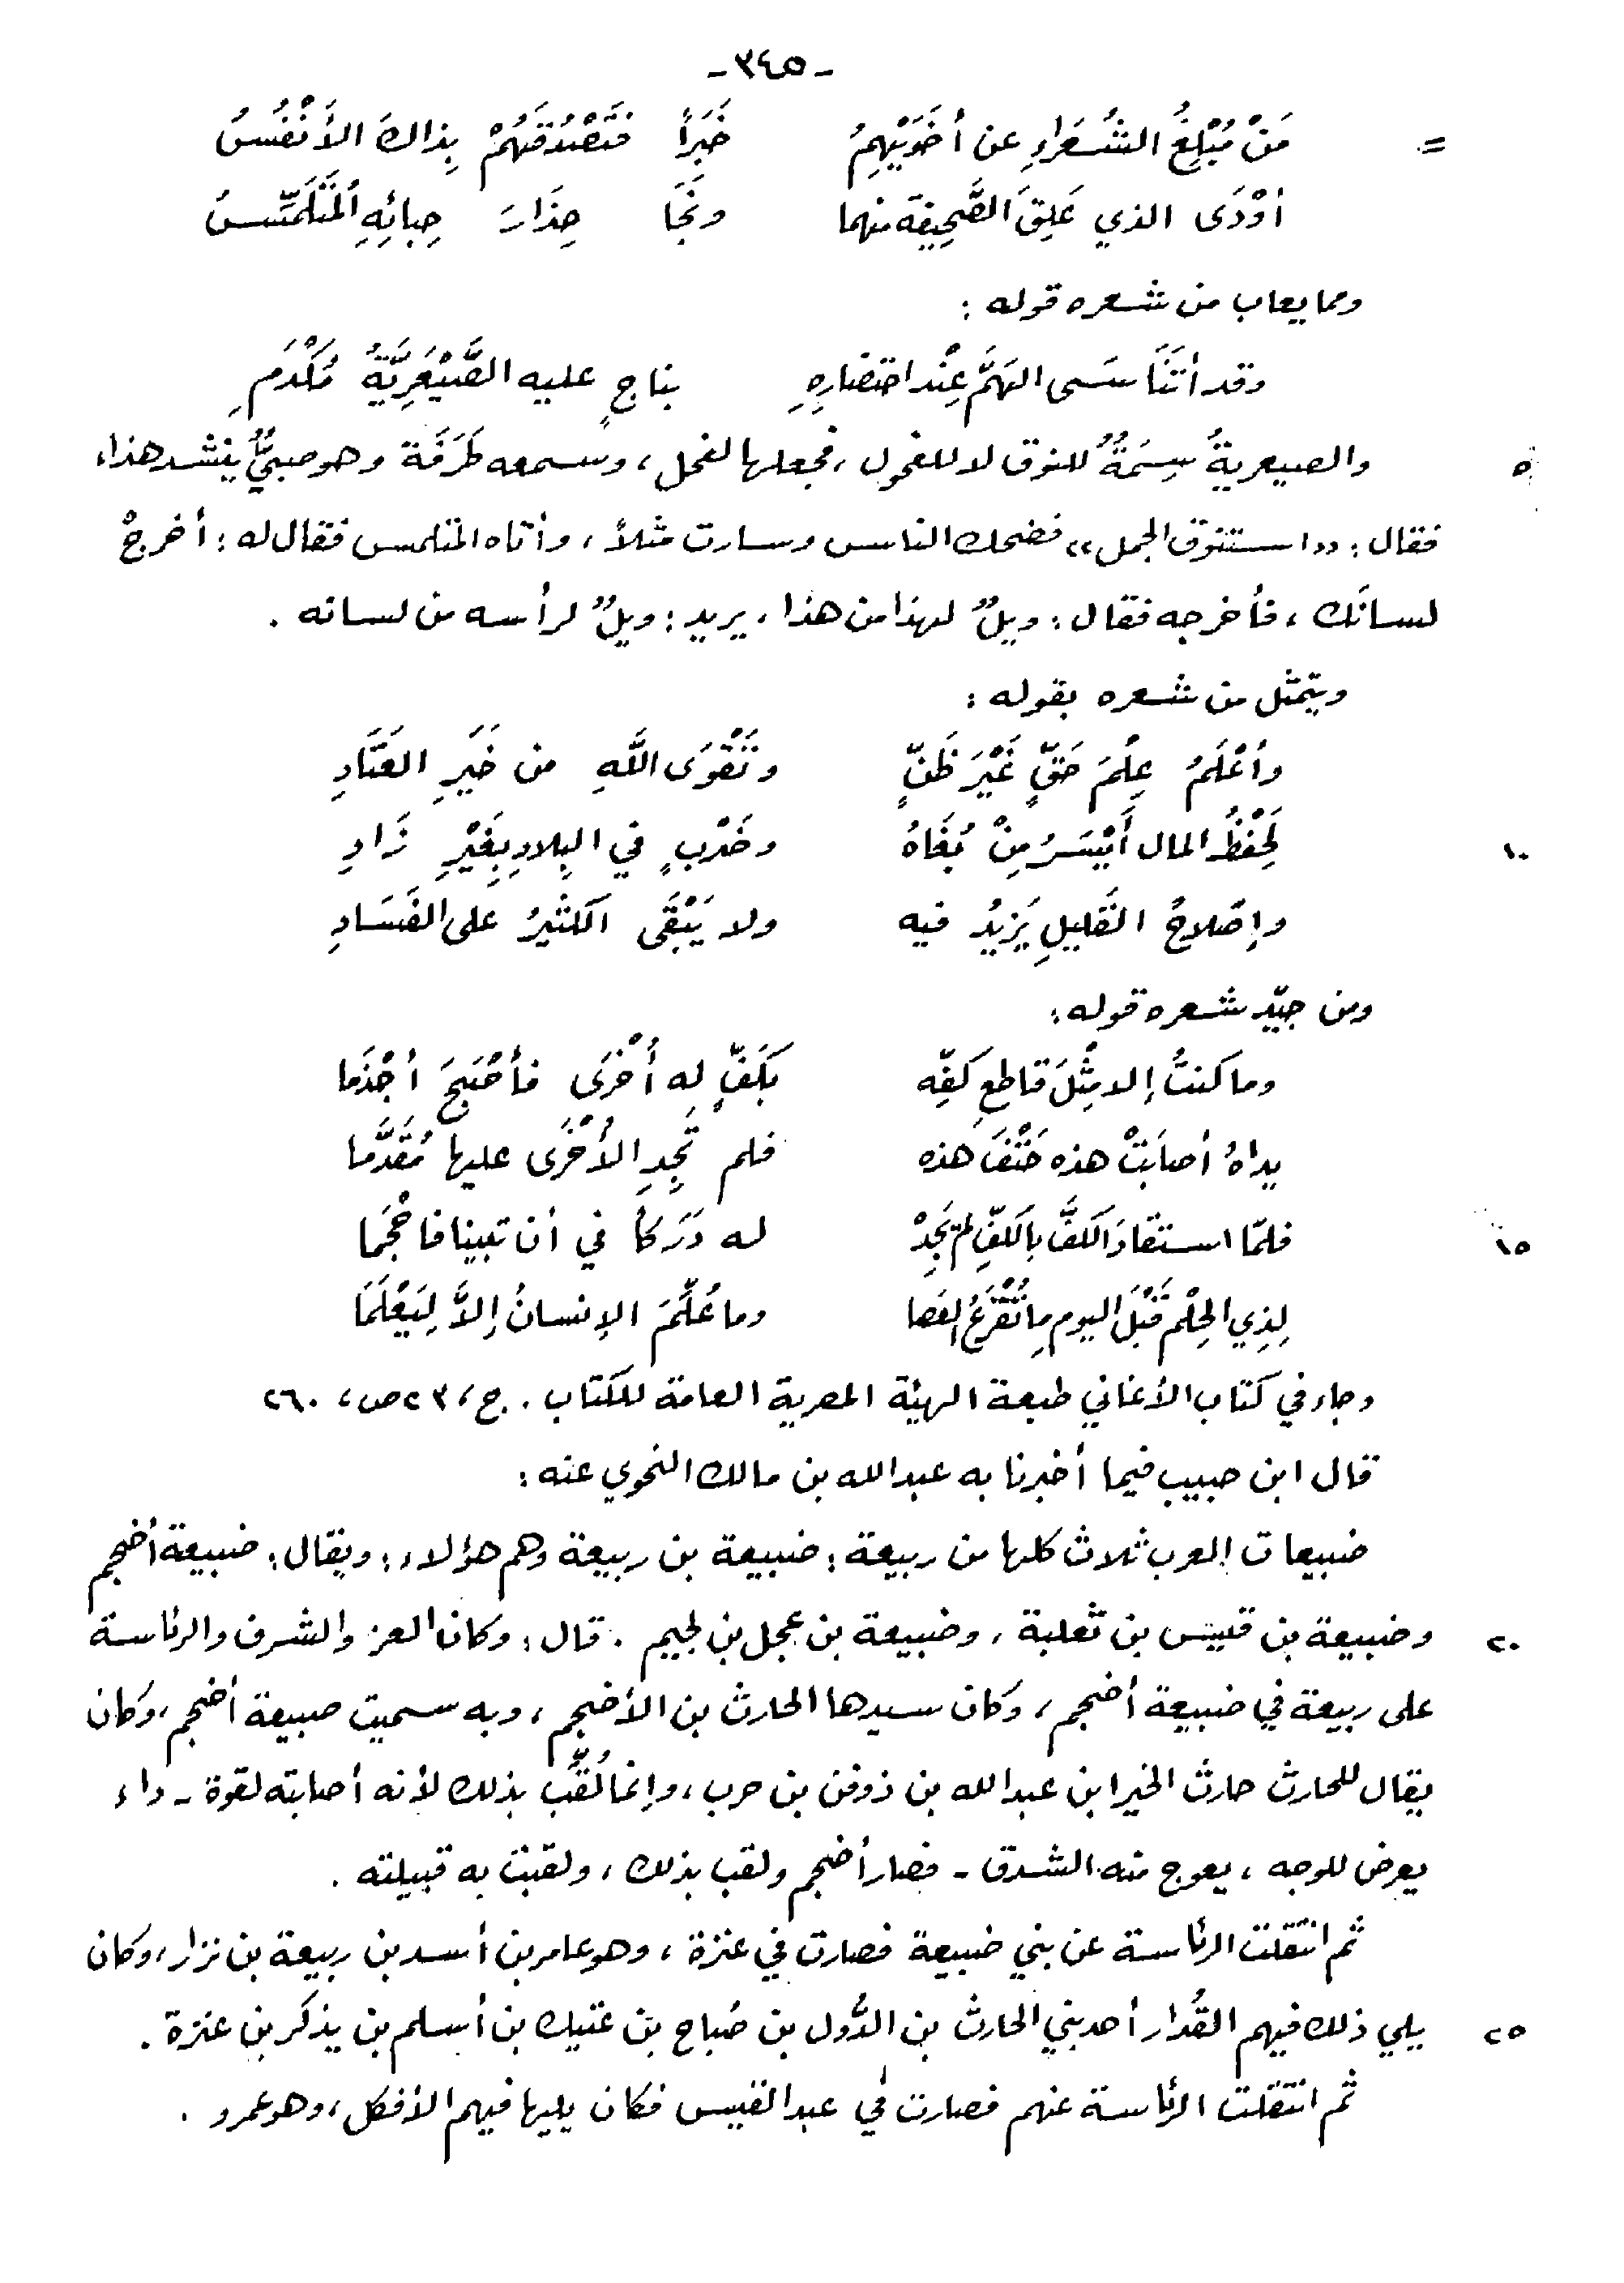 -٣٤٥-
= مَنْ مُبْلِغُ الشُعَراءِ عن أخَوَيْهِمُ خَبَرَاً فتَصْدُقَهُمْ بِذاكَ الأَنْفُسُ
أوْدَى الذي عَلِقَ الصَّحِيفةَ منهما ونَجَا حِذَارَ حِبائِهِ المُتَلَمِّسُ
ومما يعاب من شعره قوله :
وقد أتَنَاسَى الهَمَّ عِنْد احتضارِهِ بناجٍ عليه الصَّيْعَرِيَّةُ مُكْدَمِ
٥ والصيعريةُ سِمَةٌ للنوق لا للفحول ، فجعلها لفحل ، وسمعه طَرَفَة وهو صبيٌّ ينشد هذا ،
فقال : «استنوق الجمل» فضحك الناس وسارت مثلاً ، وأتاه المتلمس فقال له : أخرجْ
لسانَك ، فأخرجه فقال : ويلٌ لهذا من هذا ، يريد : ويلٌ لرأسه من لسانه .
ويتمثل من شعره بقوله :
وأعْلَمُ عِلْمَ حَقٍّ غَيْرَ ظَنٍّ وتَقْوَى اللّهِ من خَيَرِ العَتَادِ
١٠ لَحِفْظُ المال أَيْسَرُ مِنْ بُغَاهُ وضَرْبٍ في البِلادِ بِغَيْرِ زَادِ
وإصْلاحُ القَليلِ يَزِيدُ فيه ولا يَبْقَى الكَثيرُ على الفَسَادِ
ومن جيّد شعره قوله :
وما كنتُ إلا مِثْلَ قاطعِ كَفِّه بكَفٍّ له أُخْرَى فأصْبَحَ أجْذَما
يداهُ أصابَتْ هذه حَتْفَ هذه فلم تَجِدِ الأُخْرَى عليها مُقَدَّما
١٥ فلمّا استقادَ الكَفَّ بالكَفِّ لم تَجِدْ له دَرَكاً في أن تبينا فاحْجَما
لِذِي الحِلْمِ قَبْلَ اليوم ما تُقْرَعُ العَصا وما عُلِّمَ الإنسانُ إلاَّ لِيَعْلَمَا
وجاء في كتاب الأغاني طبعة الهيئة المصرية العامة للكتاب . ج ، ٢٣ ص ، ٢٦٠
قال ابن حبيب فيما أخبرنا به عبدالله بن مالك النحوي عنه :
ضبيعات العرب ثلاث كلها من ربيعة : ضبيعة بن ربيعة وهم هؤلاء : ويقال : ضبيعة أضجم
٢٠ وضبيعة بن قييس بن ثعلبة ، وضبيعة بن عجل بن لجيم . قال : وكان العز والشرف والرئاسة
على ربيعة في ضبيعة أضجم ، وكان سيدها الحارث بن الأضجم ، وبه سميت ضبيعة أضجم ، وكان
يقال للحارث حارث الخير ابن عبدالله بن دوفن بن حرب ، وإنما لُقِّب بذلك لأنه أصابته لقوة - داء
يعرض للوجه ، يعوج منه الشدق - فصار أضجم ولقب بذلك ، ولقبت به قبيلته .
ثم انتقلت الرئاسة عن بني ضبيعة فصارت في عنزة ، وهو عامر بن أسد بن ربيعة بن نزار ، وكان
٢٥ يلي ذلك فيهم القُدار أحد بني الحارث بن الدُّول بن صُباح بن عتيك بن أسلم بن يذكر بن عنزة .
ثم انتقلت الرئاسة عنهم فصارت في عبد القييس فكان يليها فيهم الأفكل ، وهو عمرو .